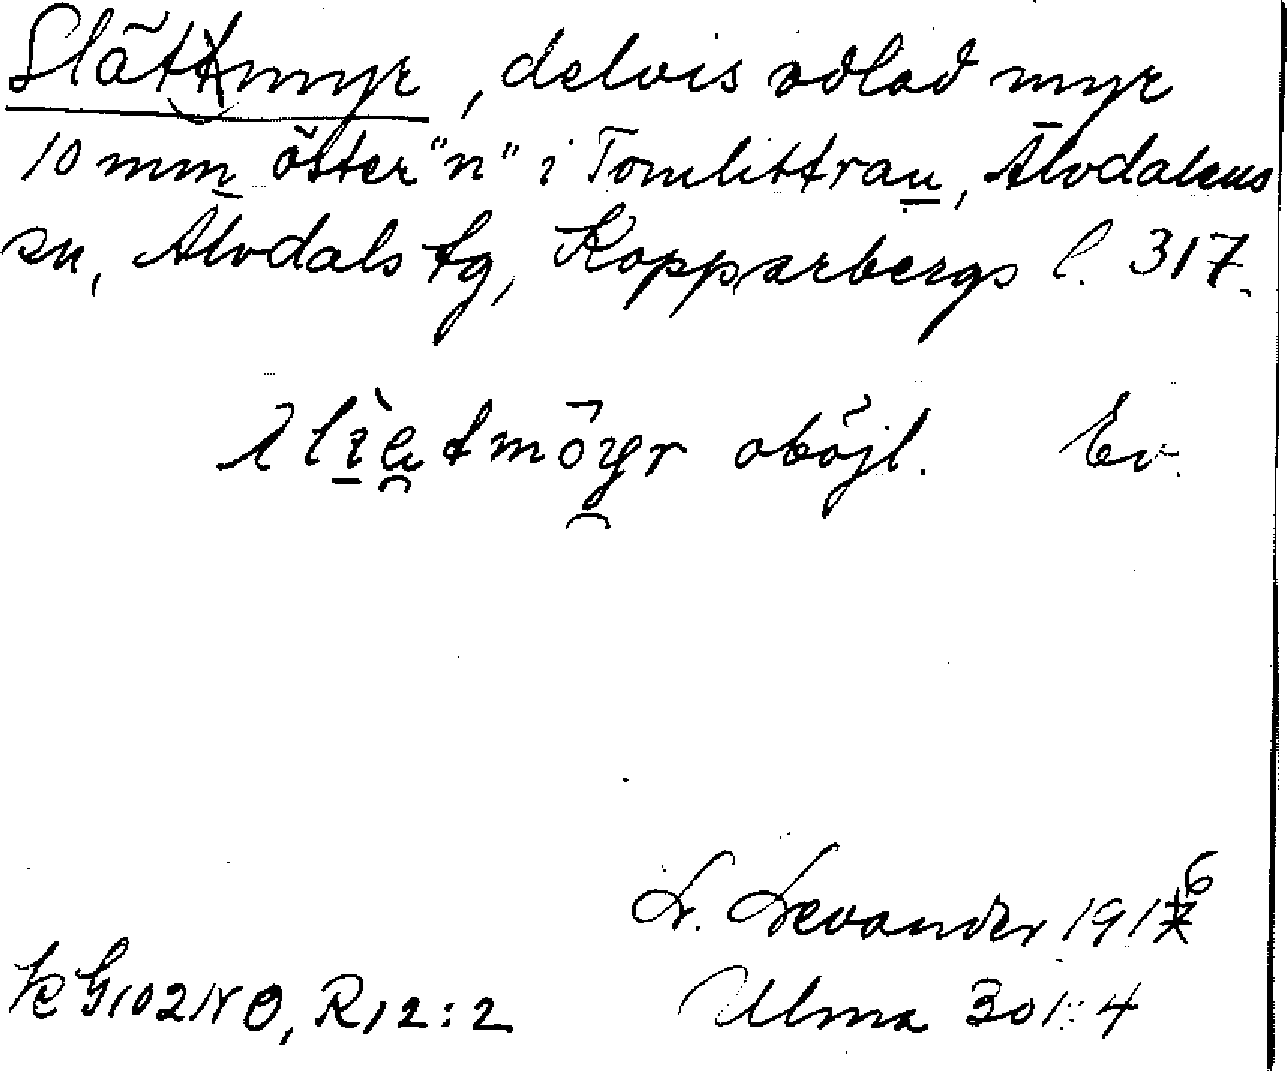 Slättmyr, delvis odlad myr
10 mm öster "n" i Tomlittrau, Älvdalens
sn, Älvdals tg, Kopparbergs l. 317.
oböjl. Ev.
L. Levander 1916
Ulma 301:4
K G102NO, R12:2